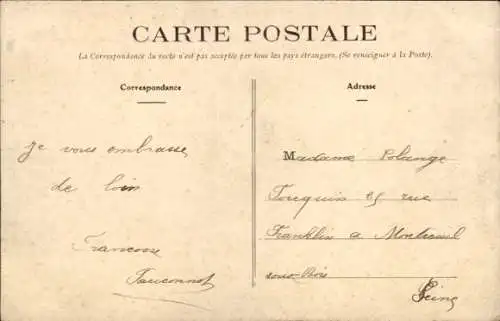 CARTE POSTALE
La Correspondance du recto n'est pas acceptée par tous les pays étrangers. (Se renseigner à la Poste).
Correspondance
Je vous embrasse
de loin
Françoise
Fauconnot
Adresse
Madame Colange
25 rue
Franklin a Montreuil
sous-Bois
Seine